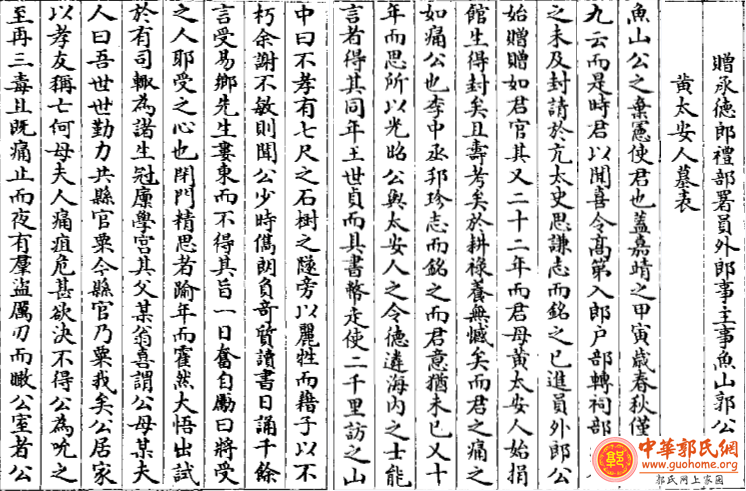 贈承德郎禮部署員外郎事主事魚山郭公
黃太安人墓表
魚山公之棄憲使君也蓋嘉靖之甲寅歲春秋僅
九云而是時君以聞喜令高第入郎户部轉祠部
之未及封請於亢太史思謙志而銘之已進員外郎公
始贈贈如君官其又二十二年而君母黃太安人始捐
館生得封矣且壽考矣於耕祿養無憾矣而君之痛之
如痛公也李中丞邦珍志而銘之而君意猶未已又十
年而思所以光昭公與太安人之令德遴海內之士能
言者得其同年王世貞而具書幣走使二千里訪之山
中曰不孝有七尺之石樹之隧旁以麗牲而藉子以不
朽余謝不敏則聞公少時儁朗負奇質讀書日誦千餘
言受易鄉先生婁東而不得其旨一日奮自勵曰將受
之人耶受之心也閉門精思者踰年而霍然大悟出試
於有司輙為諸生冠廩學宮其父某翁喜謂公母某夫
人曰吾世世勤力共縣官粟今縣官乃粟我矣公居家
以孝友稱亡何母夫人痛疽危甚欲決不得公為吮之
至再三毒且既痛止而夜有羣盜厲刃而瞰公室者公
中華郭氏網
www.guohome.org
郭氏网上家園